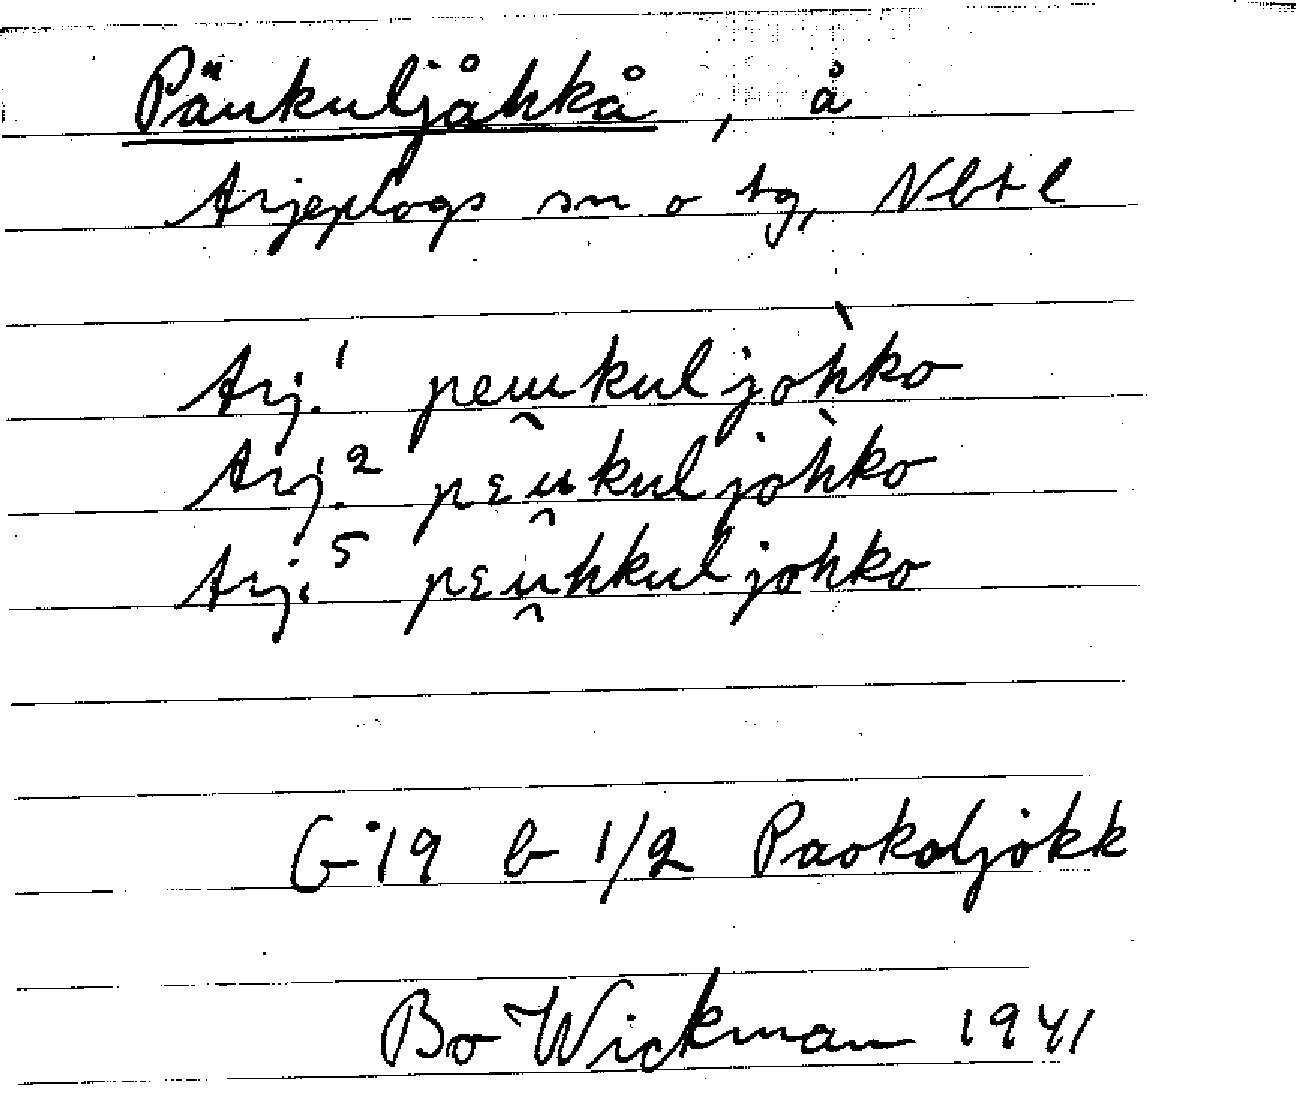 Päukuljåhkå, å
Arjeplogs sn o tg, Nbt l
Arj.¹ peu̯kuljòhko
Arj.² pɛu̯kuljòhko
Arj.⁵ pɛu̯hkuljohko
G 19 b 1/2 Paokaljokk
Bo Wickman 1941